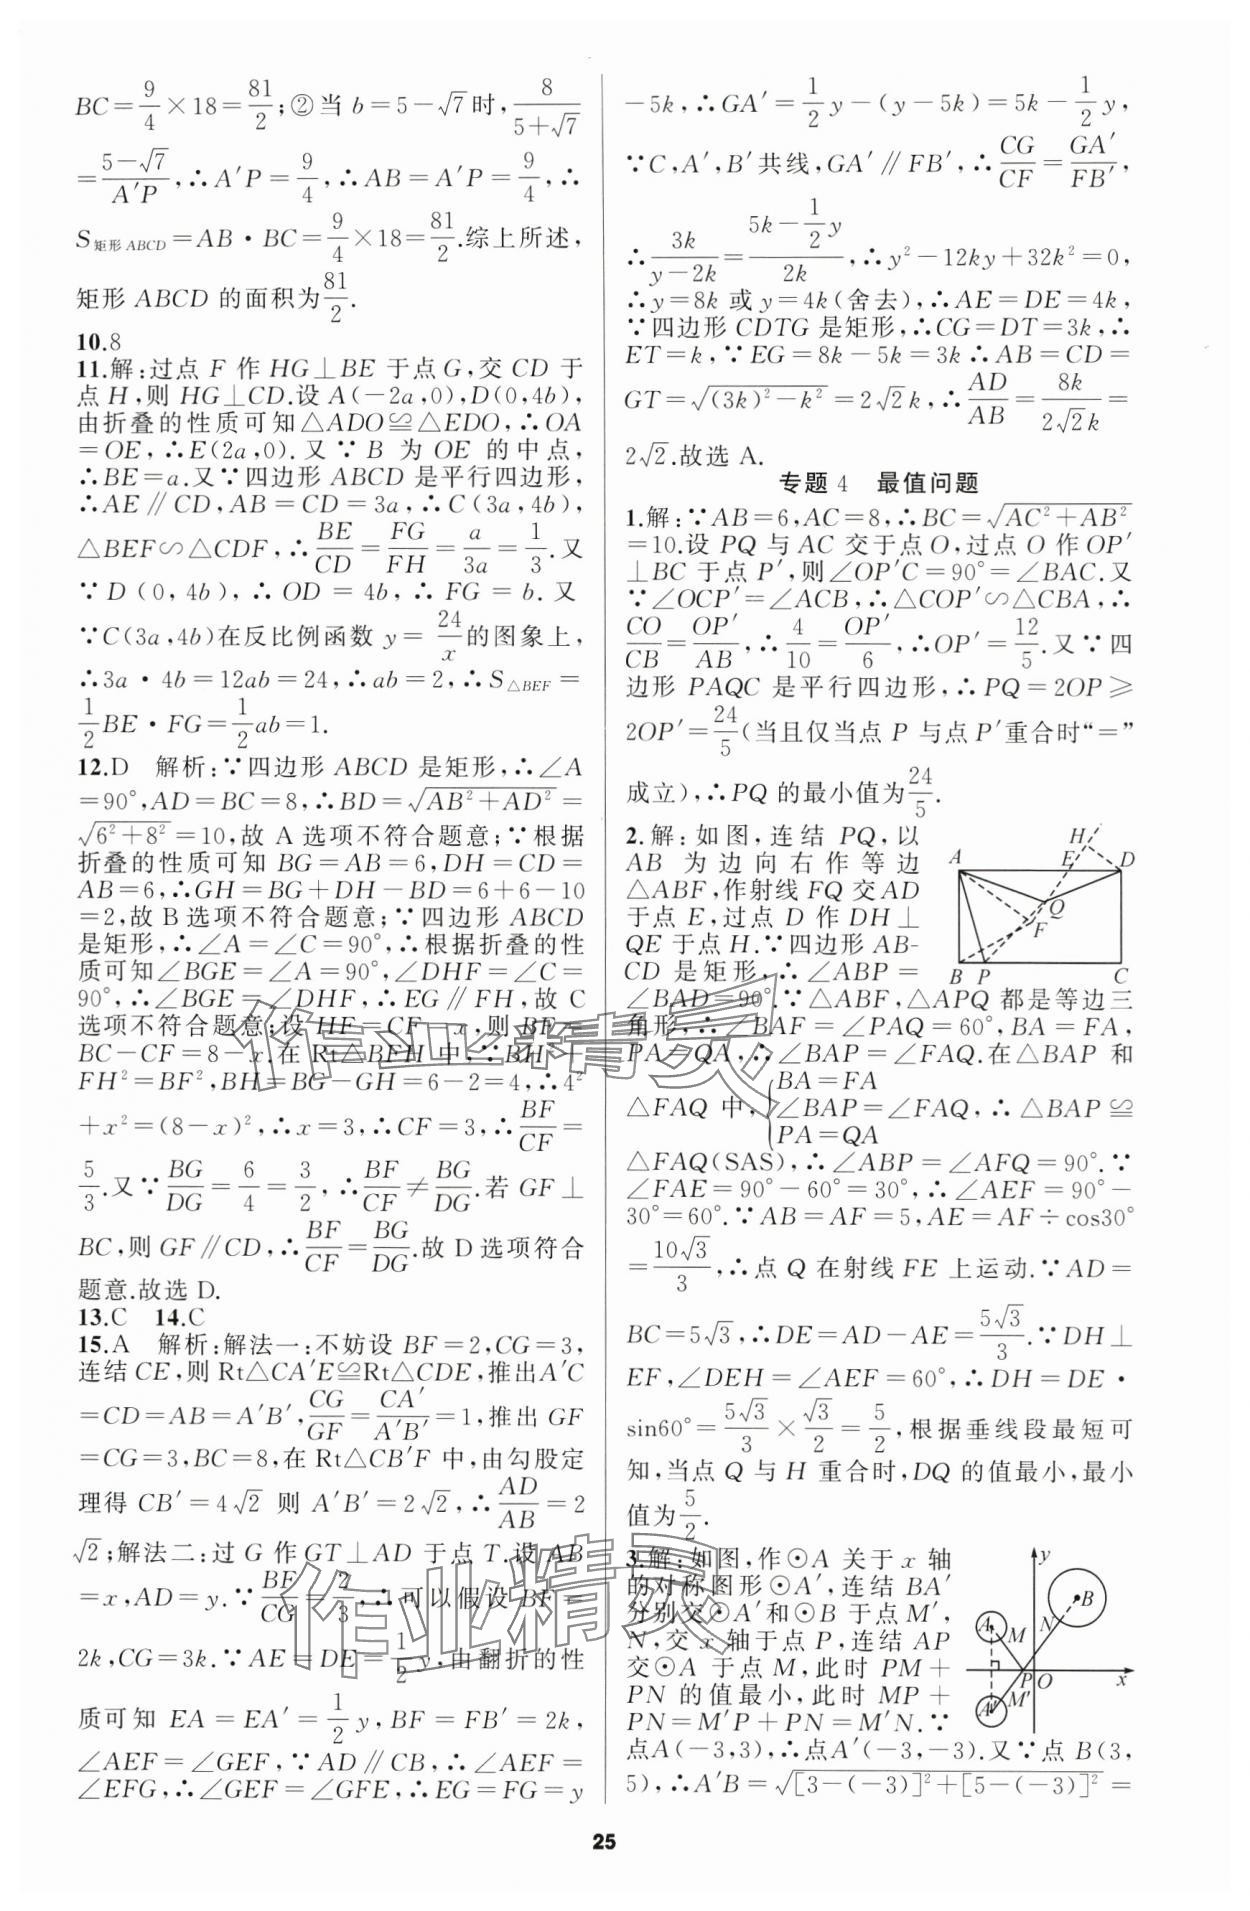 BC=9/4×18=81/2;②当 b=5-√7时,8/(5+√7)
=(5-√7)/A′P,∴A′P=9/4,∴AB=A′P=9/4,∴
S矩形ABCD=AB·BC=9/4×18=81/2.综上所述,
矩形 ABCD 的面积为81/2.
10.8
11.解:过点 F 作 HG⊥BE 于点G,交 CD 于
点 H,则 HG⊥CD.设 A(-2a,0),D(0,4b),
由折叠的性质可知△ADO≌△EDO,∴OA
=OE,∴E(2a,0).又∵B 为 OE 的中点,
∴BE=a.又∵四边形 ABCD 是平行四边形,
∴AE∥CD,AB=CD=3a,∴C(3a,4b),
△BEF∽△CDF,∴BE/CD=FG/FH=a/3a=1/3.又
∵D(0,4b),∴OD=4b,∴FG=b.又
∵C(3a,4b)在反比例函数 y=24/x的图象上,
∴3a·4b=12ab=24,∴ab=2,∴S△BEF=
1/2BE·FG=1/2ab=1.
12.D 解析:∵四边形 ABCD 是矩形,∴∠A
=90°,AD=BC=8,∴BD=√(AB²+AD²)=
√(6²+8²)=10,故 A 选项不符合题意;∵根据
折叠的性质可知 BG=AB=6,DH=CD=
AB=6,∴GH=BG+DH-BD=6+6-10
=2,故 B 选项不符合题意;∵四边形 ABCD
是矩形,∴∠A=∠C=90°,∴根据折叠的性
质可知∠BGE=∠A=90°,∠DHF=∠C=
90°,∴∠BGE=∠DHF,∴EG∥FH,故 C
选项不符合题意;设 HF=CF=x,则 BF=
BC-CF=8-x.在 Rt△BFH 中,∵BH²+
FH²=BF²,BH=BG-GH=6-2=4,∴4²
+x²=(8-x)²,∴x=3,∴CF=3,∴BF/CF=
5/3.又∵BG/DG=6/4=3/2,∴BF/CF≠BG/DG.若 GF⊥
BC,则 GF∥CD,∴BF/CF=BG/DG.故 D 选项符合
题意.故选 D.
13.C 14.C
15.A 解析:解法一:不妨设 BF=2,CG=3,
连结 CE,则 Rt△CA′E≌Rt△CDE,推出A′C
=CD=AB=A′B′,CG/GF=CA′/A′B′=1,推出 GF
=CG=3,BC=8,在 Rt△CB′F 中,由勾股定
理得 CB′=4√2 则 A′B′=2√2,∴AD/AB=2
√2;解法二:过 G 作 GT⊥AD 于点 T.设 AB
=x,AD=y.∵BF/CG=2/3,∴可以假设 BF=
2k,CG=3k.∵AE=DE=1/2y,由翻折的性
质可知 EA=EA′=1/2y,BF=FB′=2k,
∠AEF=∠GEF,∵AD∥CB,∴∠AEF=
∠EFG,∴∠GEF=∠GFE,∴EG=FG=y
-5k,∴GA′=1/2y-(y-5k)=5k-1/2y,
∵C,A′,B′共线,GA′∥FB′,∴CG/CF=GA′/FB′,
∴3k/(y-2k)=(5k-1/2y)/2k,∴y²-12ky+32k²=0,
∴y=8k 或 y=4k(舍去),∴AE=DE=4k,
∵四边形 CDTG 是矩形,∴CG=DT=3k,∴
ET=k,∵EG=8k-5k=3k∴AB=CD=
GT=√((3k)²-k²)=2√2k,∴AD/AB=8k/(2√2k)=
2√2.故选 A.
专题4 最值问题
1.解:∵AB=6,AC=8,∴BC=√(AC²+AB²)
=10.设 PQ 与 AC 交于点 O,过点 O 作 OP′
⊥BC 于点 P′,则∠OP′C=90°=∠BAC.又
∵∠OCP′=∠ACB,∴△COP′∽△CBA,∴
CO/CB=OP′/AB,∴4/10=OP′/6,∴OP′=12/5.又∵四
边形 PAQC 是平行四边形,∴PQ=2OP≥
2OP′=24/5(当且仅当点 P 与点 P′重合时“=”
成立),∴PQ 的最小值为24/5.
2.解:如图,连结 PQ,以
AB 为边向右作等边
△ABF,作射线 FQ 交 AD
于点 E,过点 D 作 DH⊥
QE 于点 H.∵四边形 AB-
CD 是矩形,∴∠ABP=
∠BAD=90°.∵△ABF,△APQ 都是等边三
角形,∴∠BAF=∠PAQ=60°,BA=FA,
PA=QA,∴∠BAP=∠FAQ.在△BAP 和
△FAQ 中,{BA=FA
∠BAP=∠FAQ,∴△BAP≌
PA=QA
△FAQ(SAS),∴∠ABP=∠AFQ=90°.∵
∠FAE=90°-60°=30°,∴∠AEF=90°-
30°=60°.∵AB=AF=5,AE=AF÷cos30°
=10√3/3,∴点 Q 在射线 FE 上运动.∵AD=
BC=5√3,∴DE=AD-AE=5√3/3.∵DH⊥
EF,∠DEH=∠AEF=60°,∴DH=DE·
sin60°=5√3/3×√3/2=5/2,根据垂线段最短可
知,当点 Q 与 H 重合时,DQ 的值最小,最小
值为5/2.
A H E D Q F B P C
3.解:如图,作⊙A 关于 x 轴
的对称图形⊙A′,连结 BA′
分别交⊙A′和⊙B 于点 M′,
N,交 x 轴于点 P,连结 AP
交⊙A 于点 M,此时 PM+
PN 的值最小,此时 MP+
PN=M′P+PN=M′N.∵
点A(-3,3),∴点A′(-3,-3).又∵点 B(3,
5),∴A′B=√([3-(-3)]²+[5-(-3)]²)=
y B A M N P O x A′ M′
25
作业精灵
作业精灵